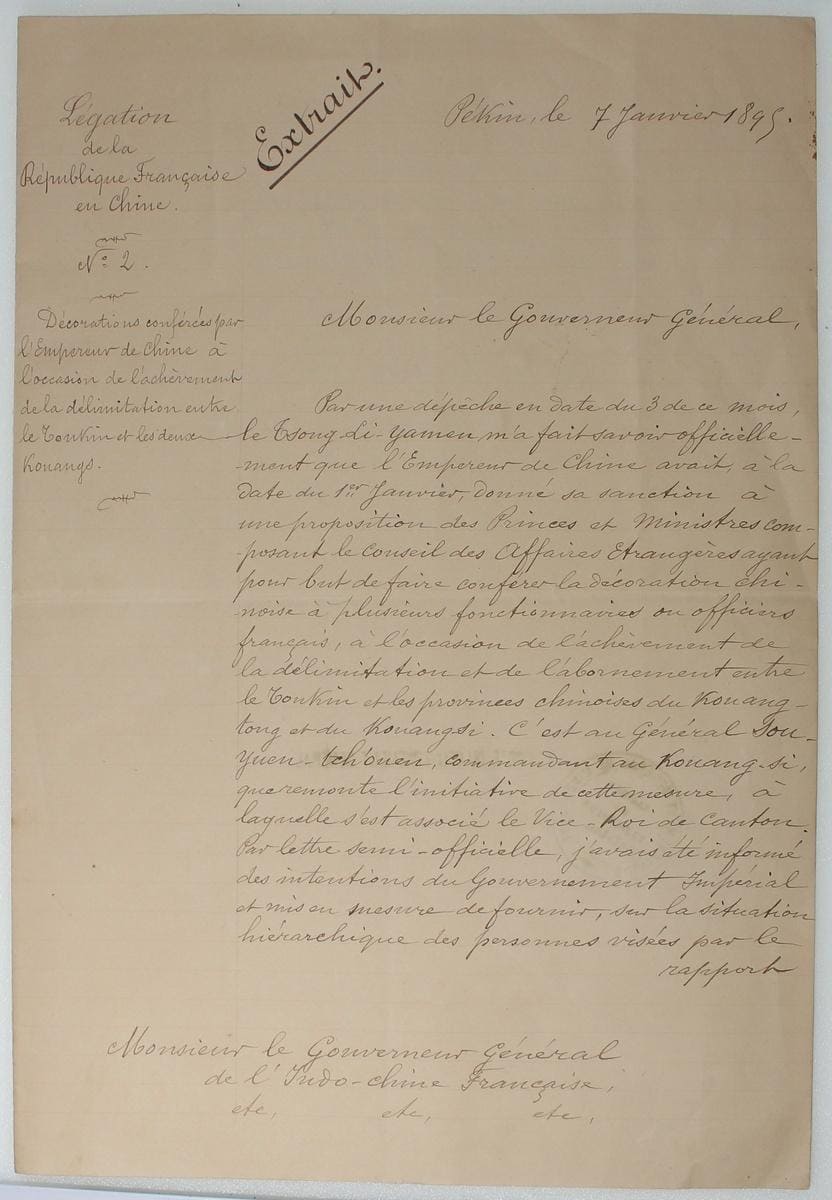 Légation
de la
République Française
en Chine.
N° 2.
Extrait.
Pékin, le 7 Janvier 1895.
Décorations conférées par
l'Empereur de Chine à
l'occasion de l'achèvement
de la délimitation entre
le Tonkin et les deux
Kouangs.
Monsieur le Gouverneur Général,
Par une dépêche en date du 3 de ce mois,
le Tsong-Li-Yamen m'a fait savoir officielle-
-ment que l'Empereur de Chine avait, à la
date du 1er Janvier, donné sa sanction à
une proposition des Princes et Ministres com-
-posant le Conseil des Affaires Etrangères ayant
pour but de faire conférer la décoration chi-
-noise à plusieurs fonctionnaires ou officiers
français, à l'occasion de l'achèvement de
la délimitation et de l'abornement entre
le Tonkin et les provinces chinoises du Kouang-
tong et du Kouangsi. C'est au Général Sou-
Yuen-tch'ouen, commandant au Kouang-si,
que remonte l'initiative de cette mesure, à
laquelle s'est associé le Vice-Roi de Canton.
Par lettre semi-officielle, j'avais été informé
des intentions du Gouvernement Impérial
et mis en mesure de fournir, sur la situation
hiérarchique des personnes visées par le
rapport
Monsieur le Gouverneur Général
de l'Indo-chine Française,
etc, etc, etc,